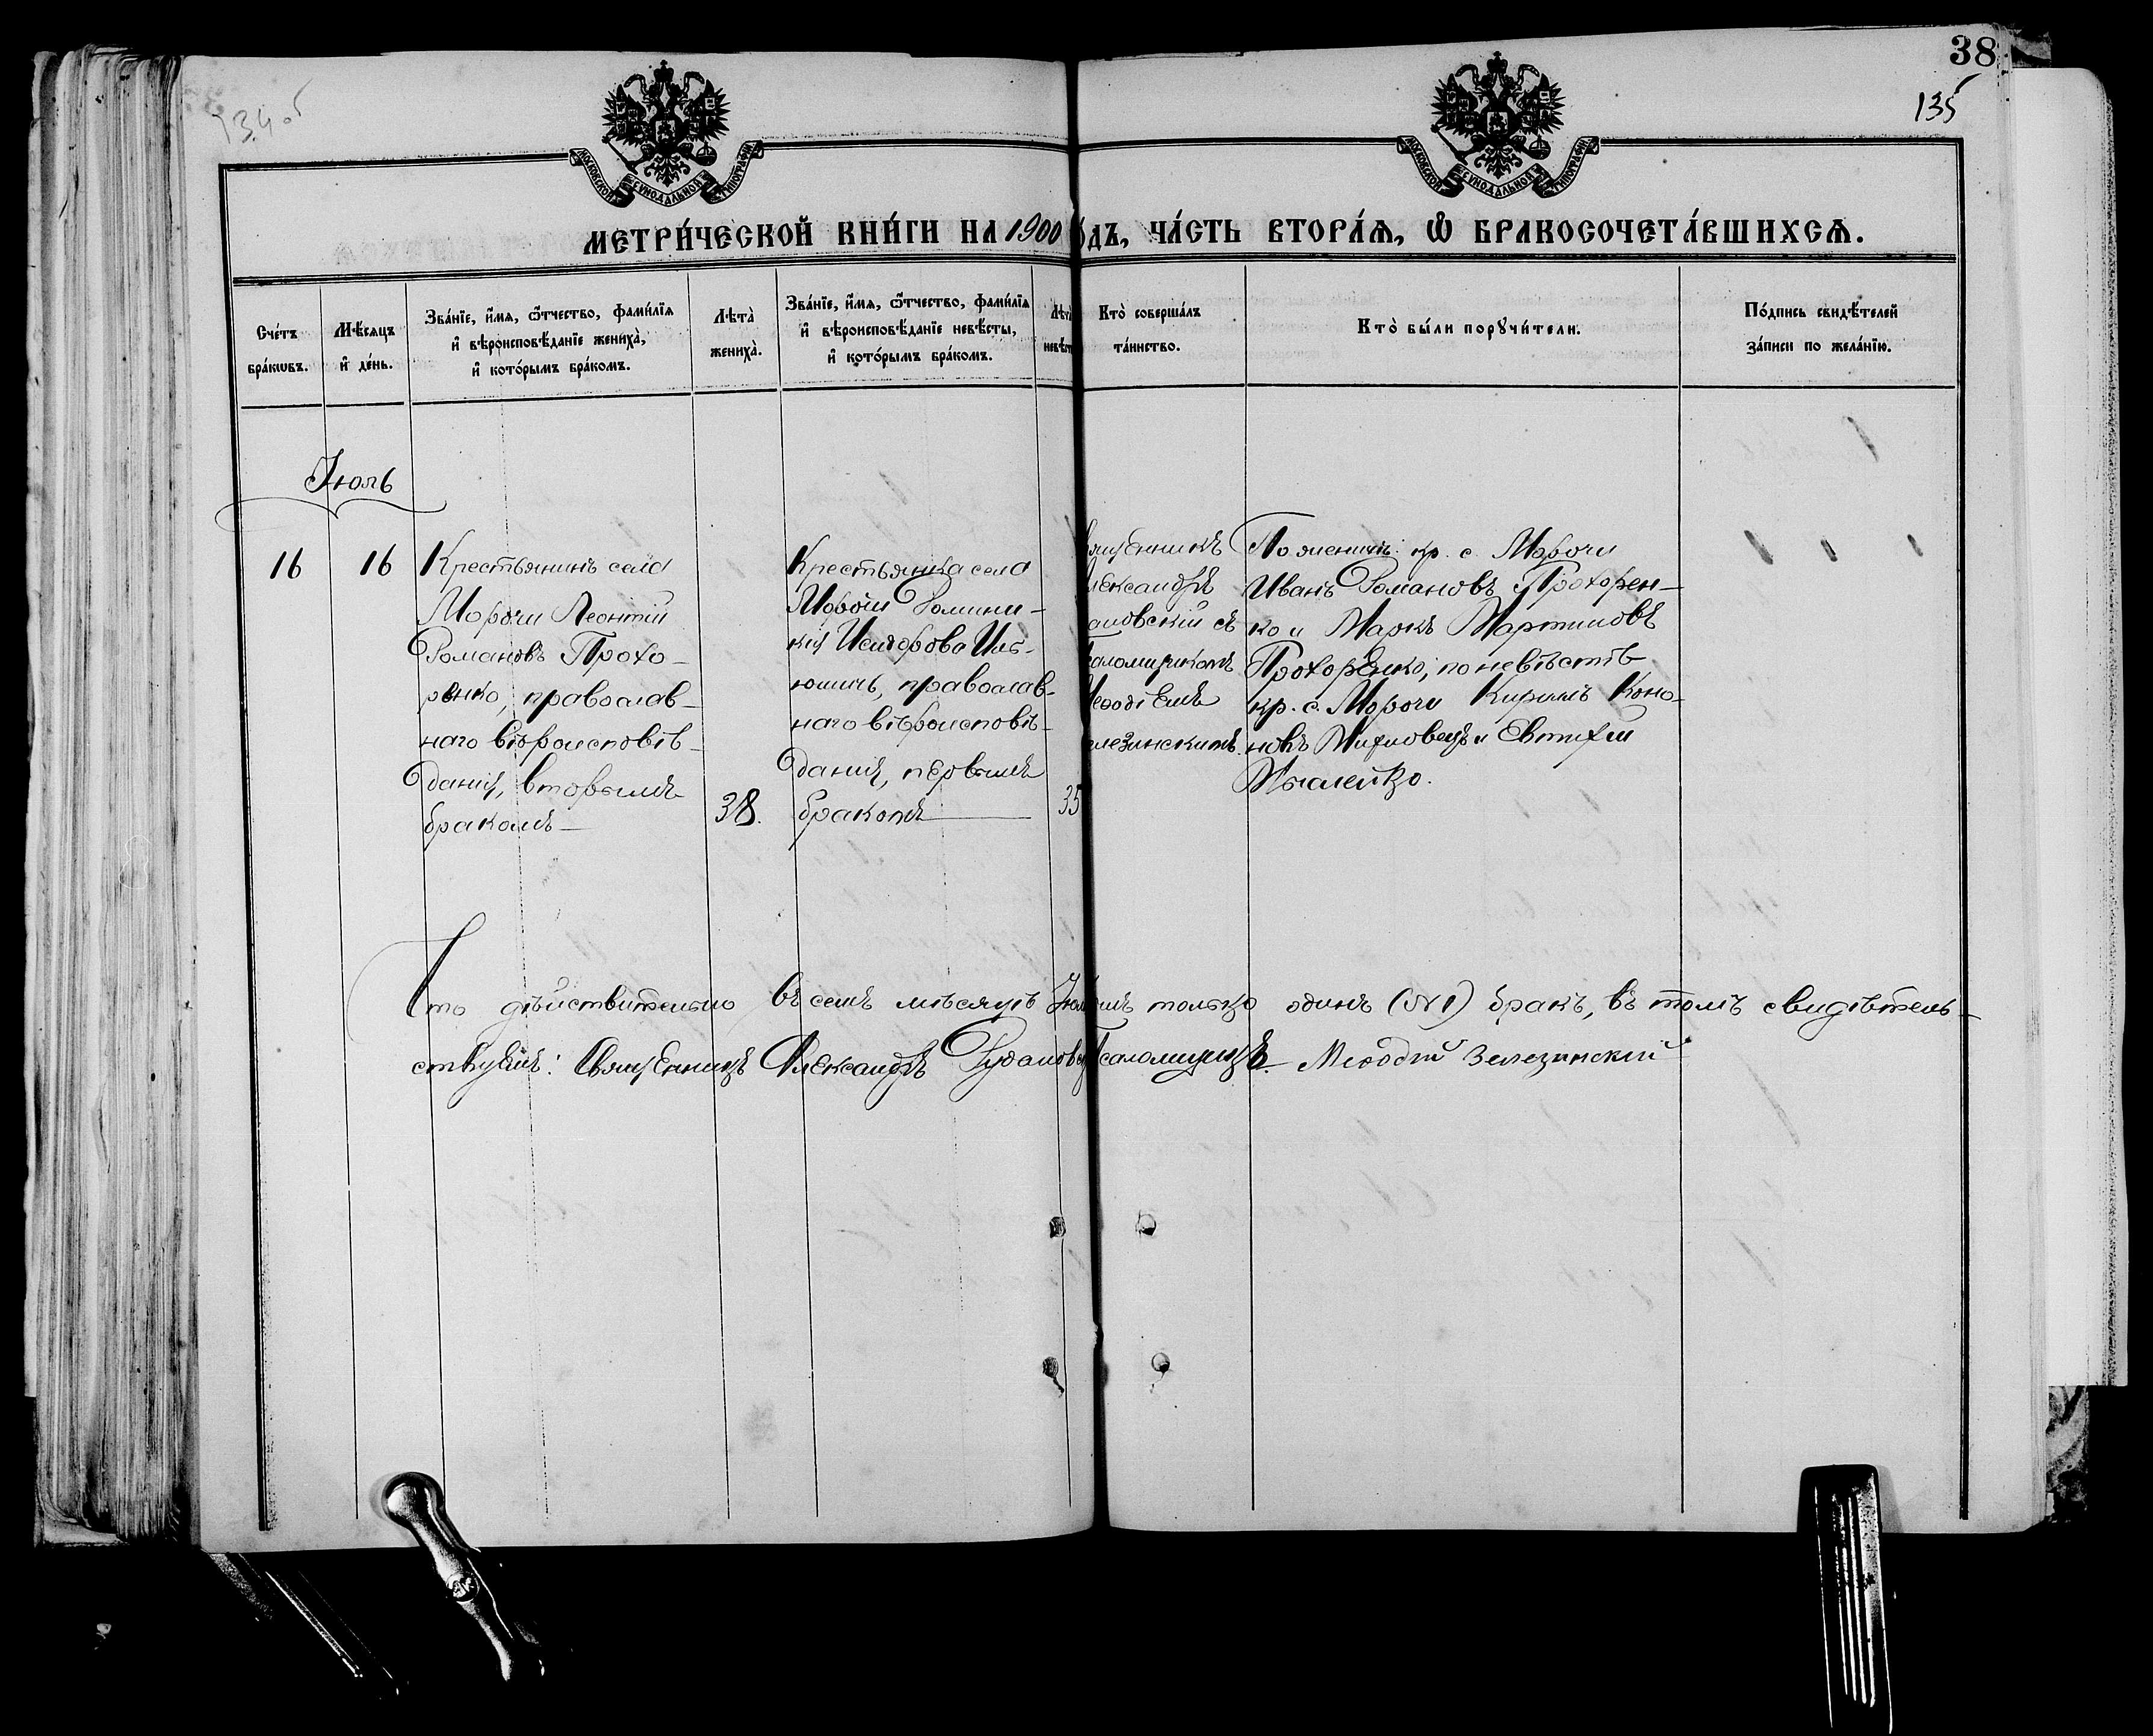 38
135
МОСКОВСКОЙ СУНОДАЛЬНОЙ ТИПОГРАФІИ
МОСКОВСКОЙ СУНОДАЛЬНОЙ ТИПОГРАФІИ
МЕТРИ́ЧЕСКОЙ КНИ́ГИ НА 1900 ГОДЪ, ЧА́СТЬ ВТОРА́Ѧ, Ѡ БРАКОСОЧЕТА́ВШИХСѦ.
Сче́тъ
бра́кѡвъ.
Мѣ́сѧцъ
и҆ де́нь.
Зва́нїе, и҆́мѧ, ѻ҆́тчество, фами́лїѧ
и҆ вѣроисповѣ́данїе жениха̀,
и҆ кото́рымъ бра́комъ.
Лѣта̀
жениха̀.
Зва́нїе, и҆́мѧ, ѻ҆́тчество, фами́лїѧ
и҆ вѣроисповѣ́данїе невѣ́сты,
и҆ кото́рымъ бра́комъ.
Лѣта̀
невѣст
Кто̀ соверша́лъ
та́инство.
Кто̀ бы́ли порꙋчи́тели.
По́дпись свидѣ́телей
за́писи по жела́нїю.
Іюль
16
16
Крестьянинъ села
Морочи Леонтій
Романовъ Прохо-
ренко, православ-
наго вѣроисповѣ-
данія, вторымъ
бракомъ
38.
Крестьянка села
Морочи Домини-
кія Исидорова Иль-
юшичъ, православ-
наго вѣроисповѣ-
данія, первымъ
бракомъ
35
вященникъ
лександръ
ановскій съ
саломщикомъ
Меѳодіемъ
елезинскимъ.
По женихѣ: кр. с. Морочи
Иванъ Романовъ Прохорен-
ко и Маркъ Мартиновъ
Прохоренко; по невѣстѣ
кр. с. Морочи Кириллъ Коно-
новъ и Евтихій
Что дѣйствительно въ семъ мѣсяцѣ Іюлѣ только одинъ (№1) бракъ, въ томъ свидѣтель-
ствуемъ: Священникъ Александръ Псаломщикъ Меѳодій Зелезинскій